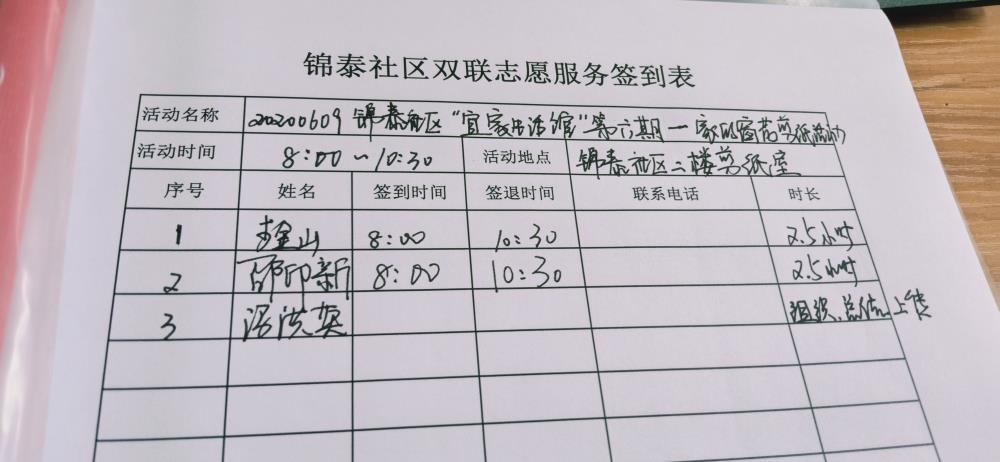 锦泰社区双联志愿服务签到表
活动名称 20200609 锦泰社区“宜家生活馆”第六期一家的窗花剪纸活动
活动时间 8:00~10:30 活动地点 锦泰社区二楼剪纸室
序号 姓名 签到时间 签退时间 联系电话 时长
1 金山 8:00 10:30 2.5小时
2 印新 8:00 10:30 2.5小时
3 组织、总结、上传